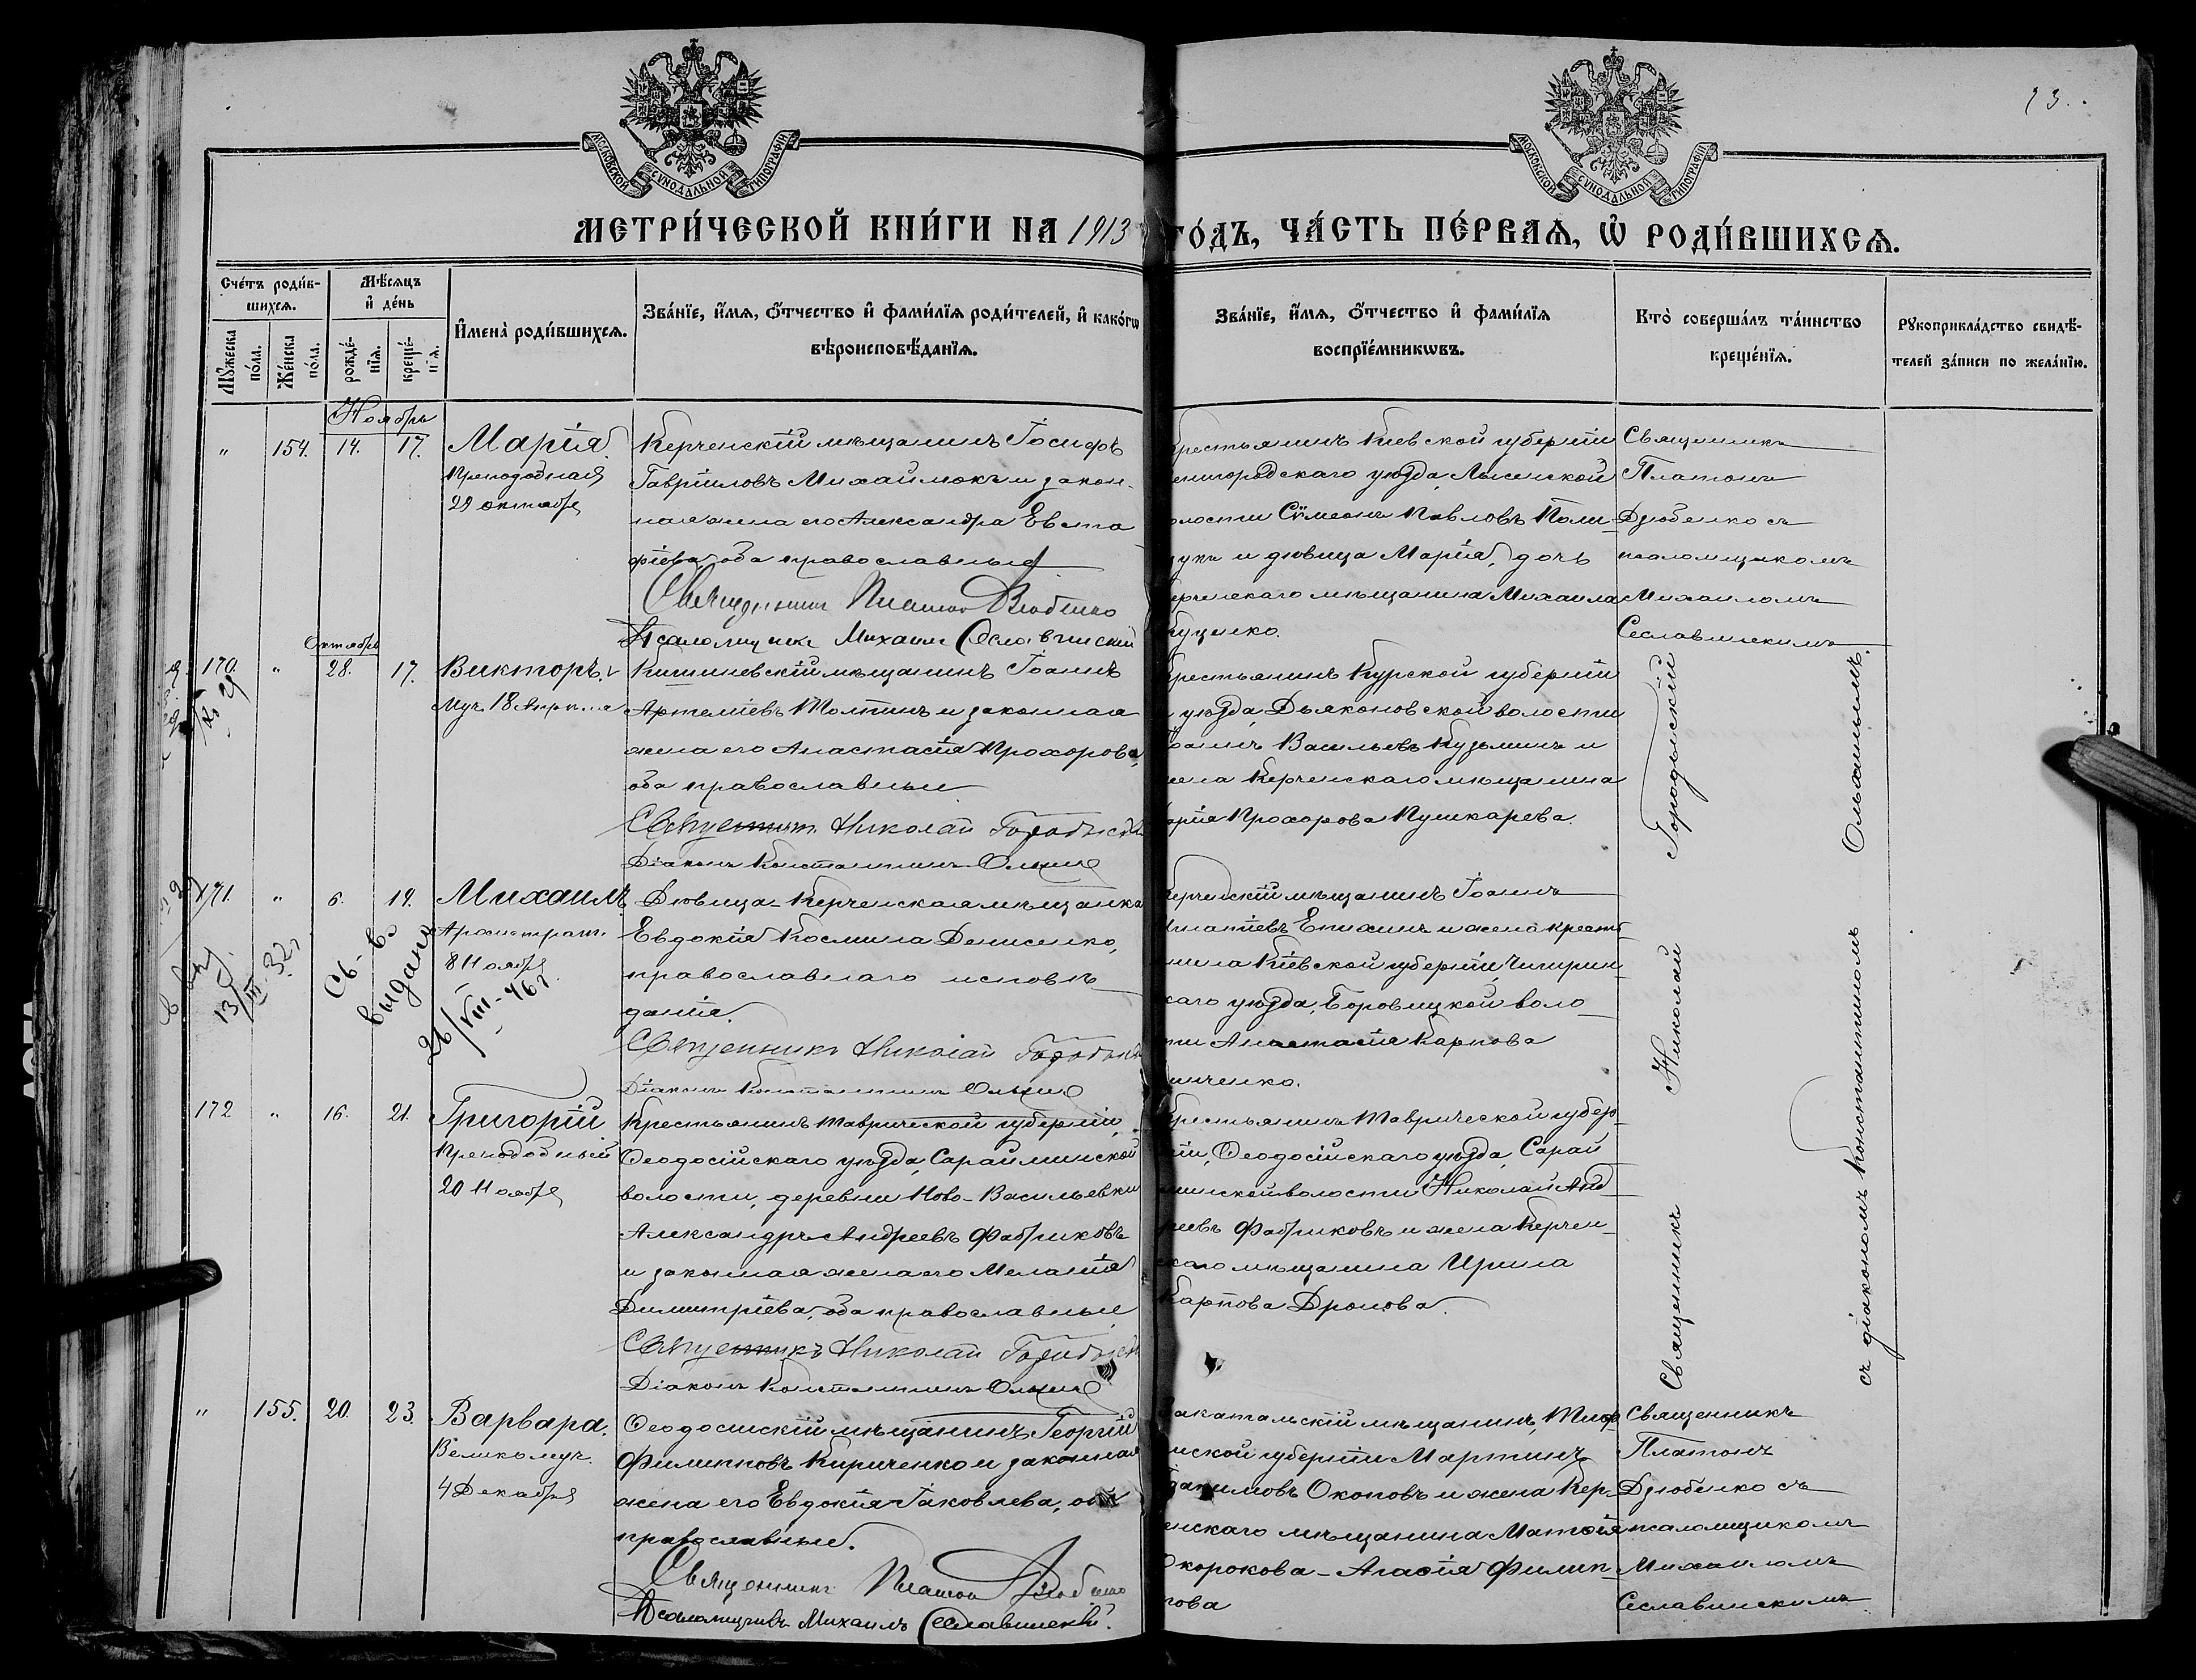 73.
МОСКОВСКОЙ СѴНОДАЛЬНОЙ ТИПОГРАФІИ
МОСКОВСКОЙ СѴНОДАЛЬНОЙ ТИПОГРАФІИ
МЕТРИ́ЧЕСКОЙ КНИ́ГИ НА 1913 ГО́ДЪ, ЧА́СТЬ ПЕ́РВАѦ, Ѡ҆ РОДИ́ВШИХСѦ.
Сче́тъ роди́в-
шихсѧ.
Мꙋжеска по́ла.
Же́нска по́ла.
Мѣ́сѧцъ
и҆ де́нь
рожде́-
нїѧ.
креще́-
нїѧ.
И҆мена̀ роди́вшихсѧ.
Зва́нїе, и҆́мѧ, ѻ҆́тчество и҆ фами́лїѧ роди́телей, и҆ како́гѡ
вѣроисповѣ́данїѧ.
Зва́нїе, и҆́мѧ, ѻ҆́тчество и҆ фами́лїѧ
воспрїе́мникѡвъ.
Кто̀ соверша́лъ та́инство
креще́нїѧ.
Рꙋкоприкла́дство свидѣ́-
телей за́писи по жела́нїю.
Ноябрь
" 154. 14. 17. Марія.
Преподобная
29 октября
Керченскій мѣщанинъ Іосифъ
Гавріиловъ Михаймокъ и закон-
ная жена его Александра Евста-
фіева, оба православные
Священникъ Платонъ Дзюбенко
Псаломщикъ Михаилъ Сеславинскій
крестьянинъ Кіевской губерніи
енигородскаго уѣзда, Лысенской
олости Сѵмеонъ Павловъ Поли-
щукъ и дѣвица Марія, дочь
ерченскаго мѣщанина Михаила
Куценко.
Священникъ
Платонъ
Дзюбенко съ
псаломщикомъ
Михаиломъ
Сеславинскимъ
Октябрь
170. " 28. 17. Викторъ.
Муч. 18 Апрѣля
Кишиневскій мѣщанинъ Іоаннъ
Артеміевъ Толпинъ и законная
жена его Анастасія Прохорова,
оба православные
Священникъ Николай Городыскій
Діаконъ Константинъ Ольхинъ
крестьянинъ Курской губерніи
уѣзда, Дьяконовской волости
Іоаннъ Васильевъ Кузьминъ и
жена Керченскаго мѣщанина
Марія Прохорова Пушкарева.
171. " 6. 19. Михаилъ
Архистратигъ
8 Ноября
Св-во
выдано
26/VIII-46г.
13/III 32г
Дѣвица-Керченская мѣщанка
Евдокія Космина Денисенко,
православнаго исповѣ-
данія.
Священникъ Николай Городыскій
Діаконъ Константинъ Ольхинъ
Керченскій мѣщанинъ Іоаннъ
Игнатіевъ Епихинъ и жена кресть-
нина Кіевской губерніи, Чигирин-
каго уѣзда, Боровицкой воло-
ти Анастасія Карпова
инченко.
172 " 16. 21. Григорій
Преподобный
20 Ноября
Крестьянинъ Таврической губерніи,
Ѳеодосійскаго уѣзда, Сарайминской
волости, деревни Ново-Васильевки
Александръ Андреевъ Фабриковъ
и законная жена его Меланія
Димитріева, оба православные
Священникъ Николай Городыскій
Діаконъ Константинъ Ольхинъ
Крестьянинъ Таврической губер-
ніи, Ѳеодосійскаго уѣзда, Сарай
минской волости Николай Анд-
реевъ Фабриковъ и жена Керчен-
скаго мѣщанина Ирина
Карпова Дронова.
Священникъ Николай Городыскій
съ діакономъ Константиномъ Ольхинымъ.
" 155. 20. 23. Варвара.
Великомуч.
4 Декабря
Ѳеодосійскій мѣщанинъ Георгій
Филипповъ Кириченко и законная
жена его Евдокія Іаковлева, оба
православные.
Священникъ Платонъ Дзюбенко
Псаломщикъ Михаилъ Сеславинскій
Закатальскій мѣщанинъ, Тиф-
лисской губерніи Мартинъ
Іоакимовъ Окоповъ и жена Кер-
енскаго мѣщанина Матѳія
Окорокова-Агаѳія Филип-
пова
Священникъ
Платонъ
Дзюбенко съ
псаломщикомъ
Михаиломъ
Сеславинскимъ